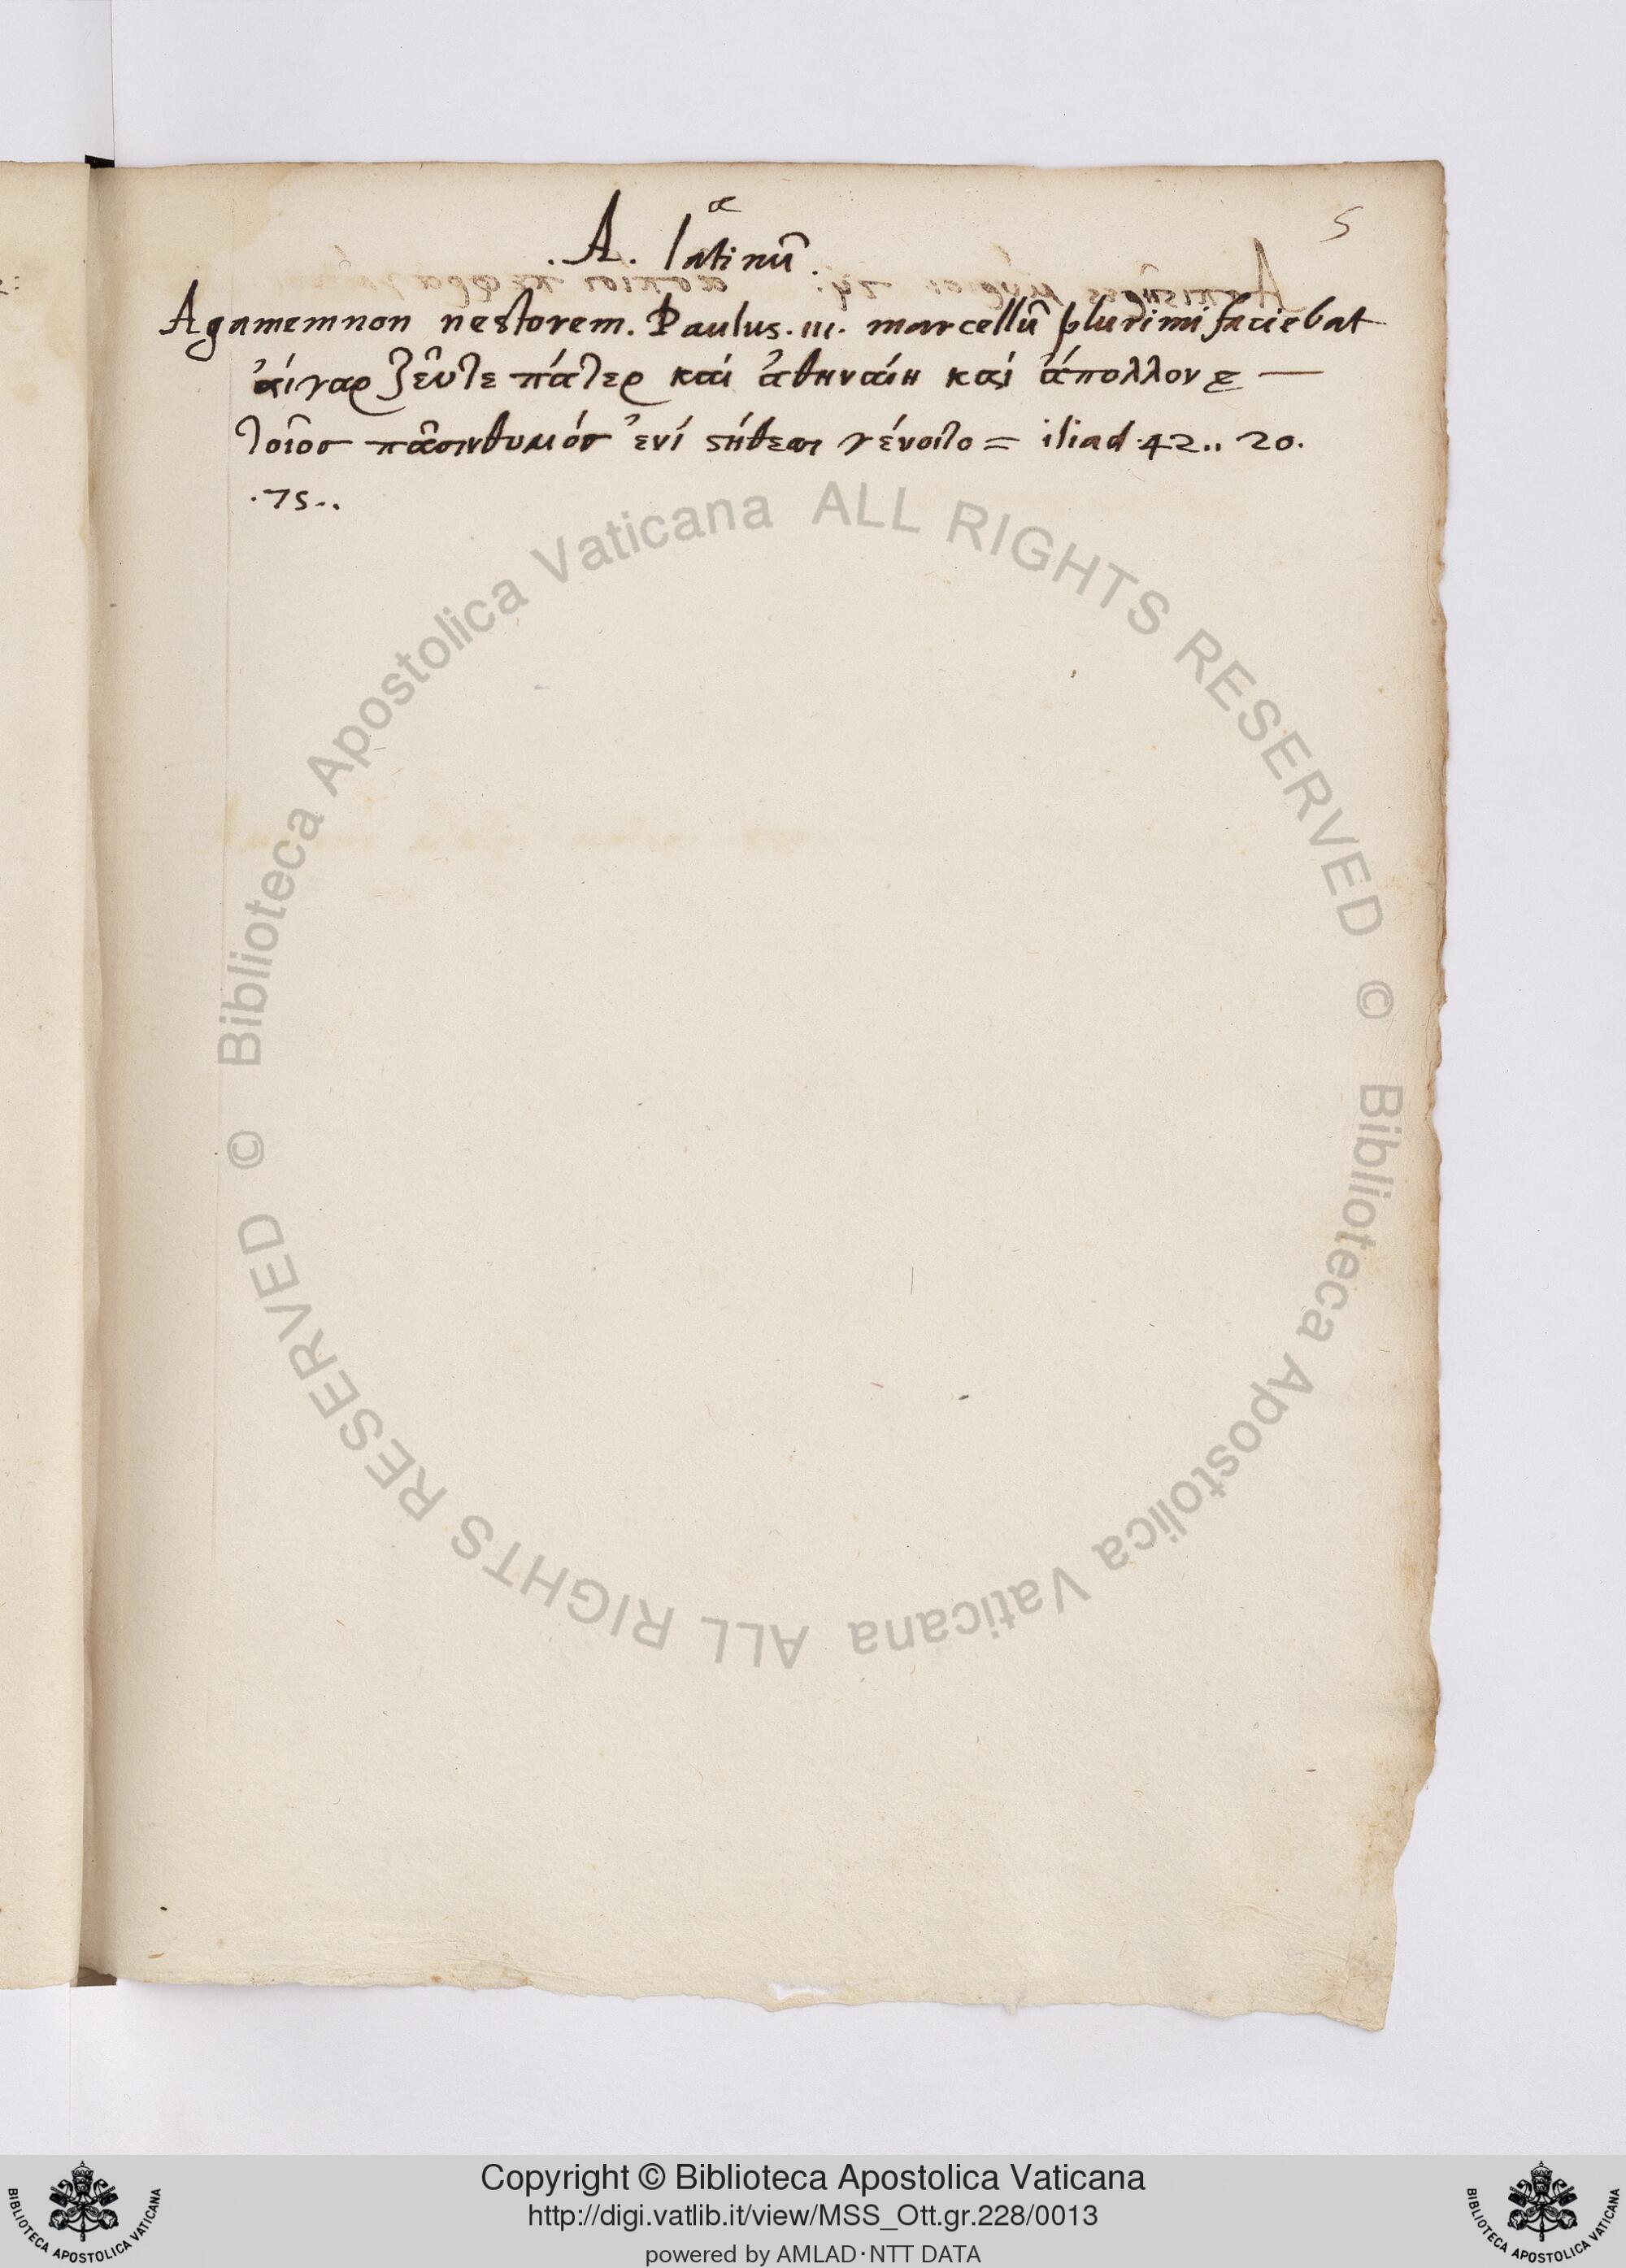 5
α
.A. latinū.
Agamemnon nestorem. Paulus .III. marcellū plurimi faciebat
ἀίγαρ ζεῦτε πάτερ καί ἀθηναίη καί ἄπολλον ε —
τοῖοσ πᾶσινθυμόσ ἐνί ϛήθεσι γένοιτο = iliad .42.. 20.
.75..
Biblioteca Apostolica Vaticana ALL RIGHTS RESERVED ©
Biblioteca Apostolica Vaticana ALL RIGHTS RESERVED ©
Copyright © Biblioteca Apostolica Vaticana
http://digi.vatlib.it/view/MSS_Ott.gr.228/0013
powered by AMLAD·NTT DATA
BIBLIOTECA APOSTOLICA VATICANA
BIBLIOTECA APOSTOLICA VATICANA